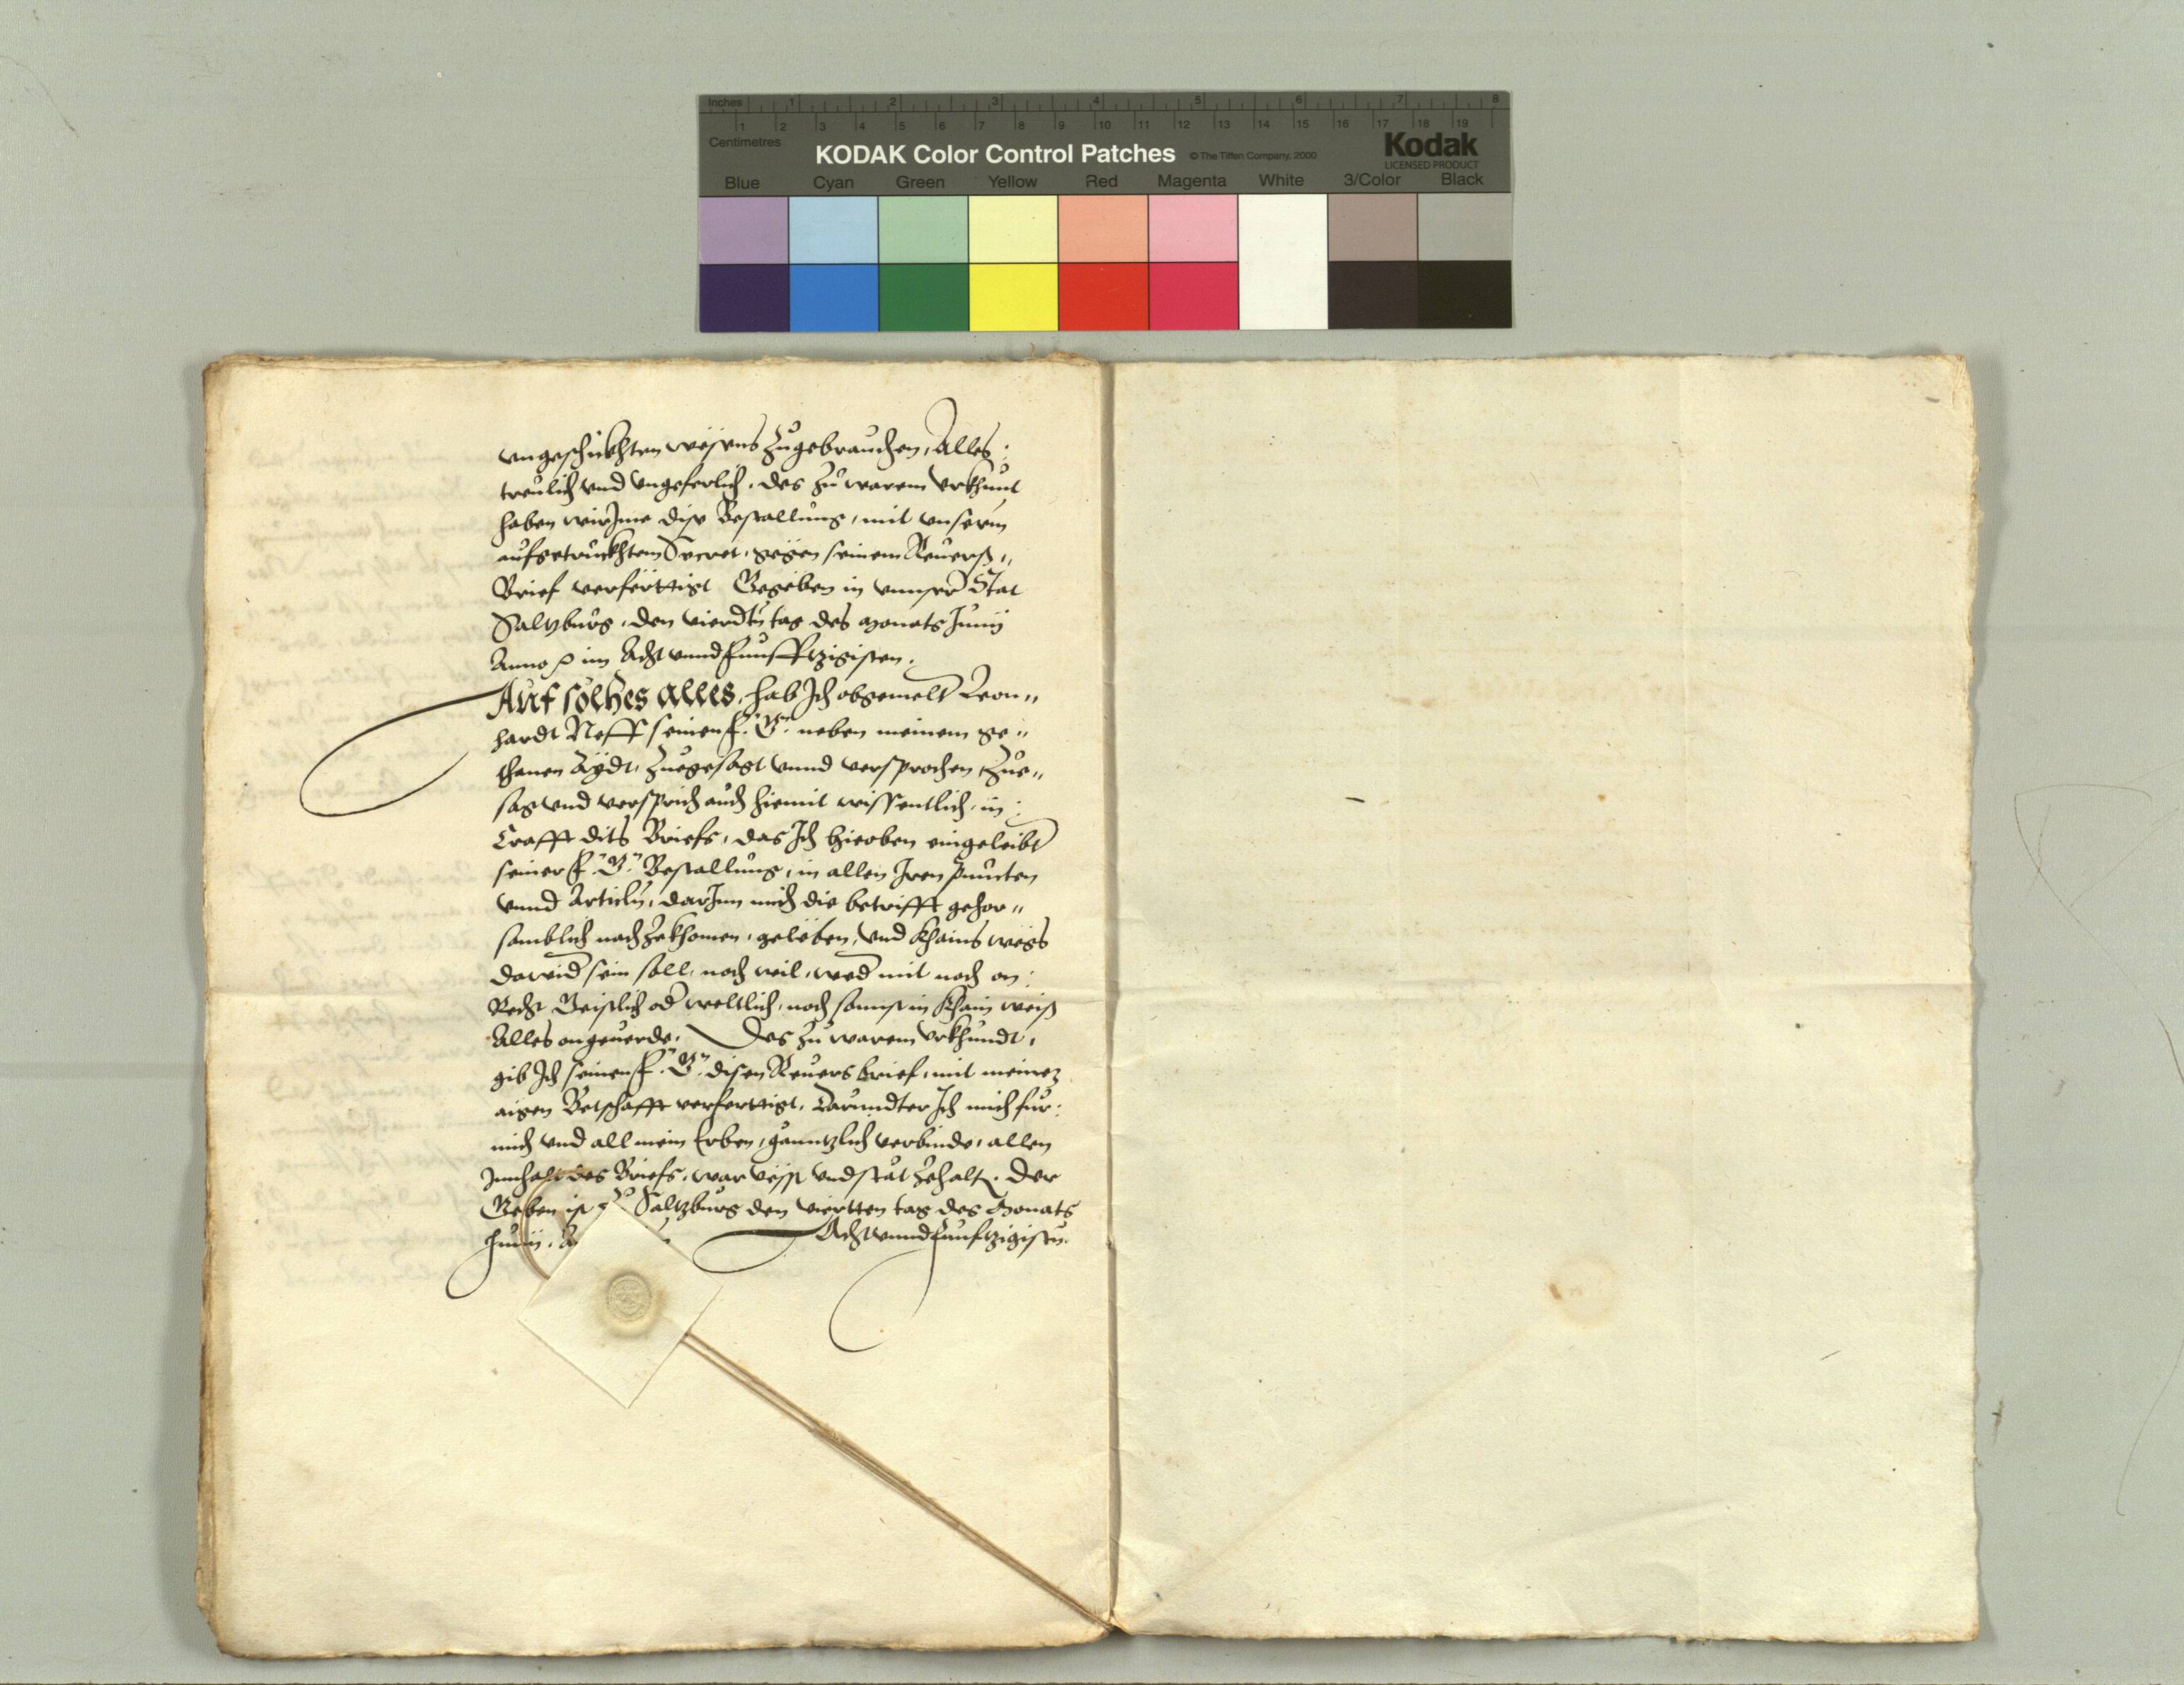 Inches 1 2 3 4 5 6 7 8
1 2 3 4 5 6 7 8 9 10 11 12 13 14 15 16 17 18 19
Centimetres
KODAK Color Control Patches © The Tiffen Company, 2000 Kodak
LICENSED PRODUCT
Blue Cyan Green Yellow Red Magenta White 3/Color Black
ungeschickhten wesens zugebrauchen, Alles
treulich vnd vngeferlich, des zu warem vrkhunt
haben wir Ime dise Bestallung, mit vnserm
aufgetruckhtem Secret, gegen seinem Reuerß„
Brief verferttigt Gegeben in vnnser Stat
Saltzburg, den vierdtn tag des monats Junij
Anno im Acht vnnd Funfftzigisten.
Auf solhes alles, hab Ich obgemelt Leon„
hardt Neff seinen F. G. neben meinem ge„
thanen Aydt, zuegesagt vnnd versprochen, Zue„
sag vnd versprich auch hiemit wissentlich, in
Crafft dits Briefs, das Ich hieoben eingeleibt
seiner F. G. Bestallung, in allen Iren puncten
vnnd Articln, darInn mich die betrifft gehor„
samblich nachzekhomen, geleben, vnd khains wegs
dawid sein soll, noch wil, wed mit noch on
Recht Geistlich od weltlich, noch sonnst in khain weiß
Alles ongeuerde, Des zu warem vrkhundt,
gib Ich seinen F. G. disen Reuers brief, mit meinez
aigen Betschafft verferttigt, Darundter Ich mich fur
mich vnd all mein Erben, ganntzlich verbinde, allen
Innhalt des Briefs, war vesst vnd stat zehaltn. Der
Geben ist zu Saltzburg den viertten tag des Monats
Junij, Acht vnnd funftzigistn.